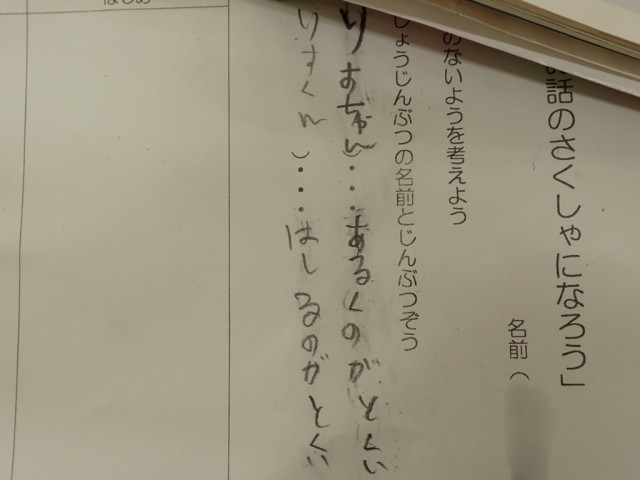 話のさくしゃになろう」
名前(
のないようを考えよう
しょうじんぶつの名前とじんぶつぞう
りすちゃん)・・・あるくのがとくい
りすくん)・・・はしるのがとくい
はじめ